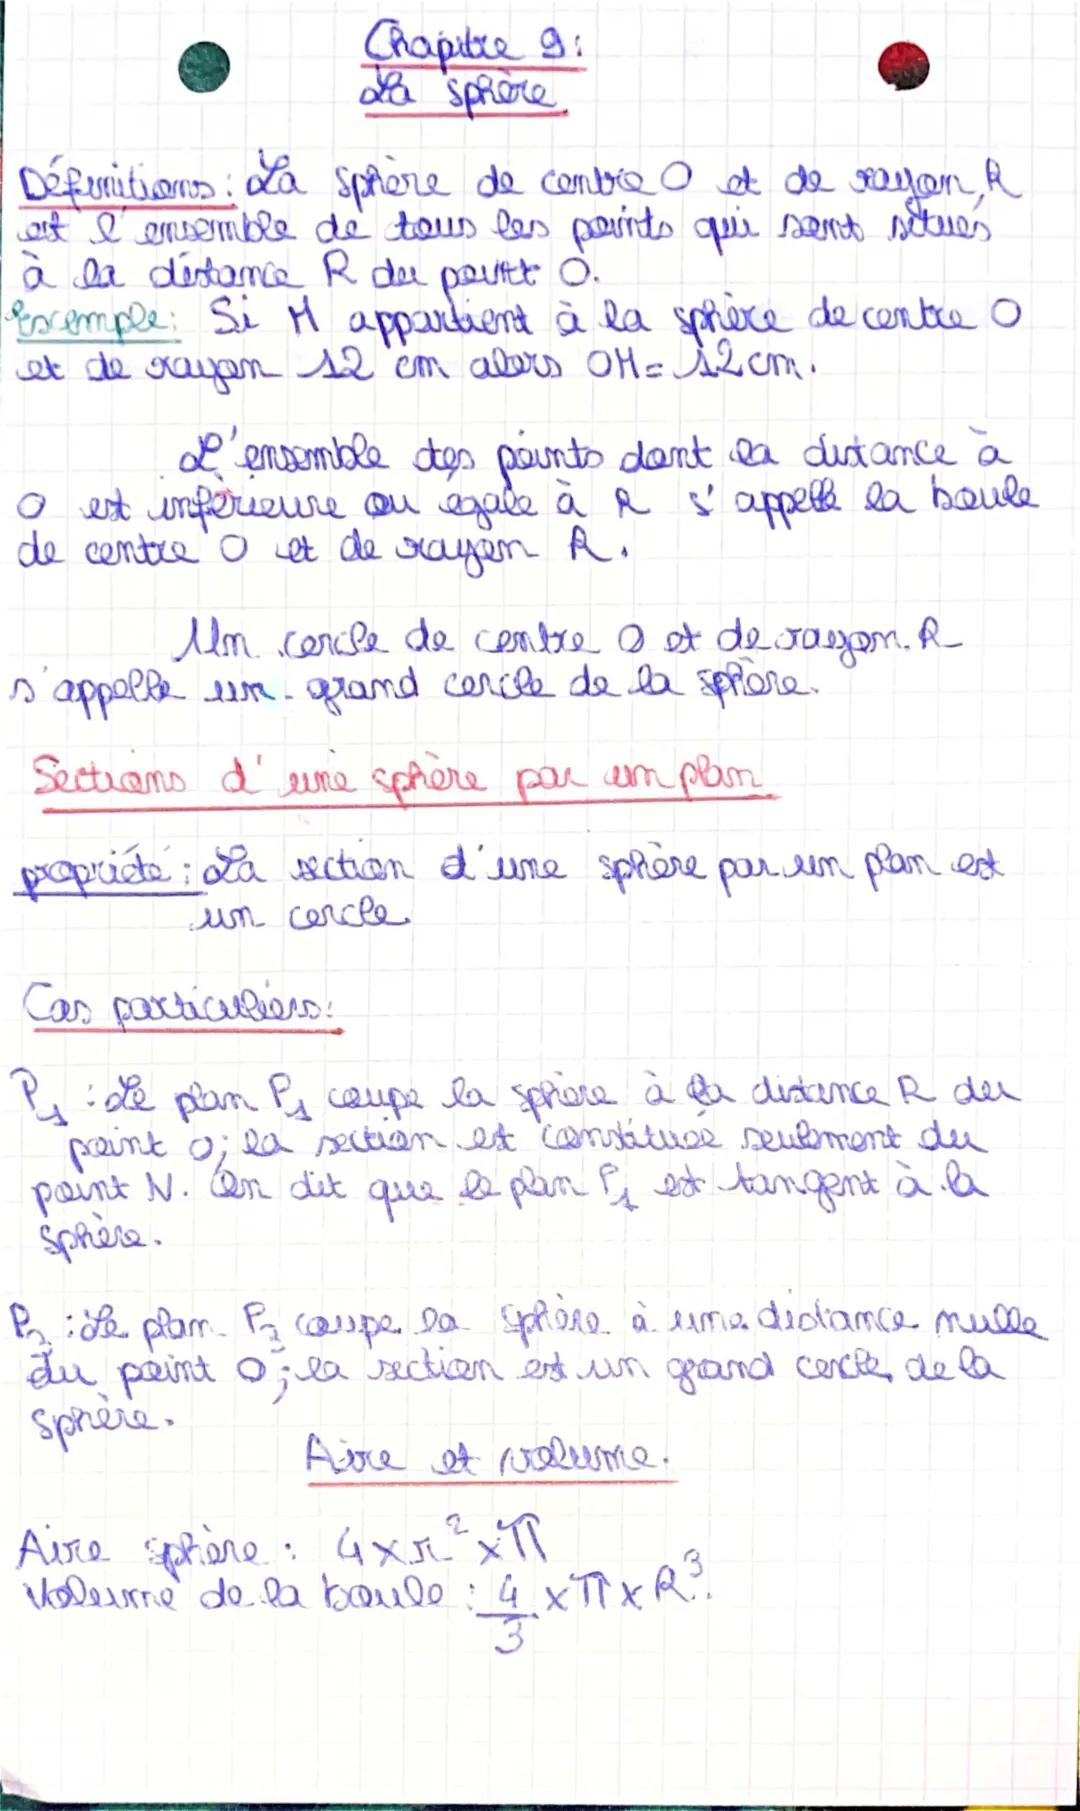 Chapitre 9:
La sphère
Définitions: La sphère de centre O et de rayon R
est l'ensemble de tous les points qui sont situés
à la distance R du point O.
Exemple: Si M appartient à la sphère de centre O
et de rayon 12 cm alors OM = 12 cm.
L'ensemble des points dont la distance à
O est inférieure ou égale à R s'appelle la boule
de centre O et de rayon R.
Un cercle de centre O et de rayon R
s'appelle un grand cercle de la sphère.
Sections d'une sphère par un plan
propriété: La section d'une sphère par un plan est
un cercle
Cas particuliers:
P₁ : Le plan P₁ coupe la sphère à la distance R du
point O; la section est constituée seulement du
point N. On dit que le plan P₁ est tangent à la
sphère.
P₂ : Le plan P₂ coupe la sphère à une distance nulle
du point O; la section est un grand cercle de la
sphère.
Aire et volume.
Aire sphère : 4 × r² × π
Volume de la boule : 4/3 × π × R³.